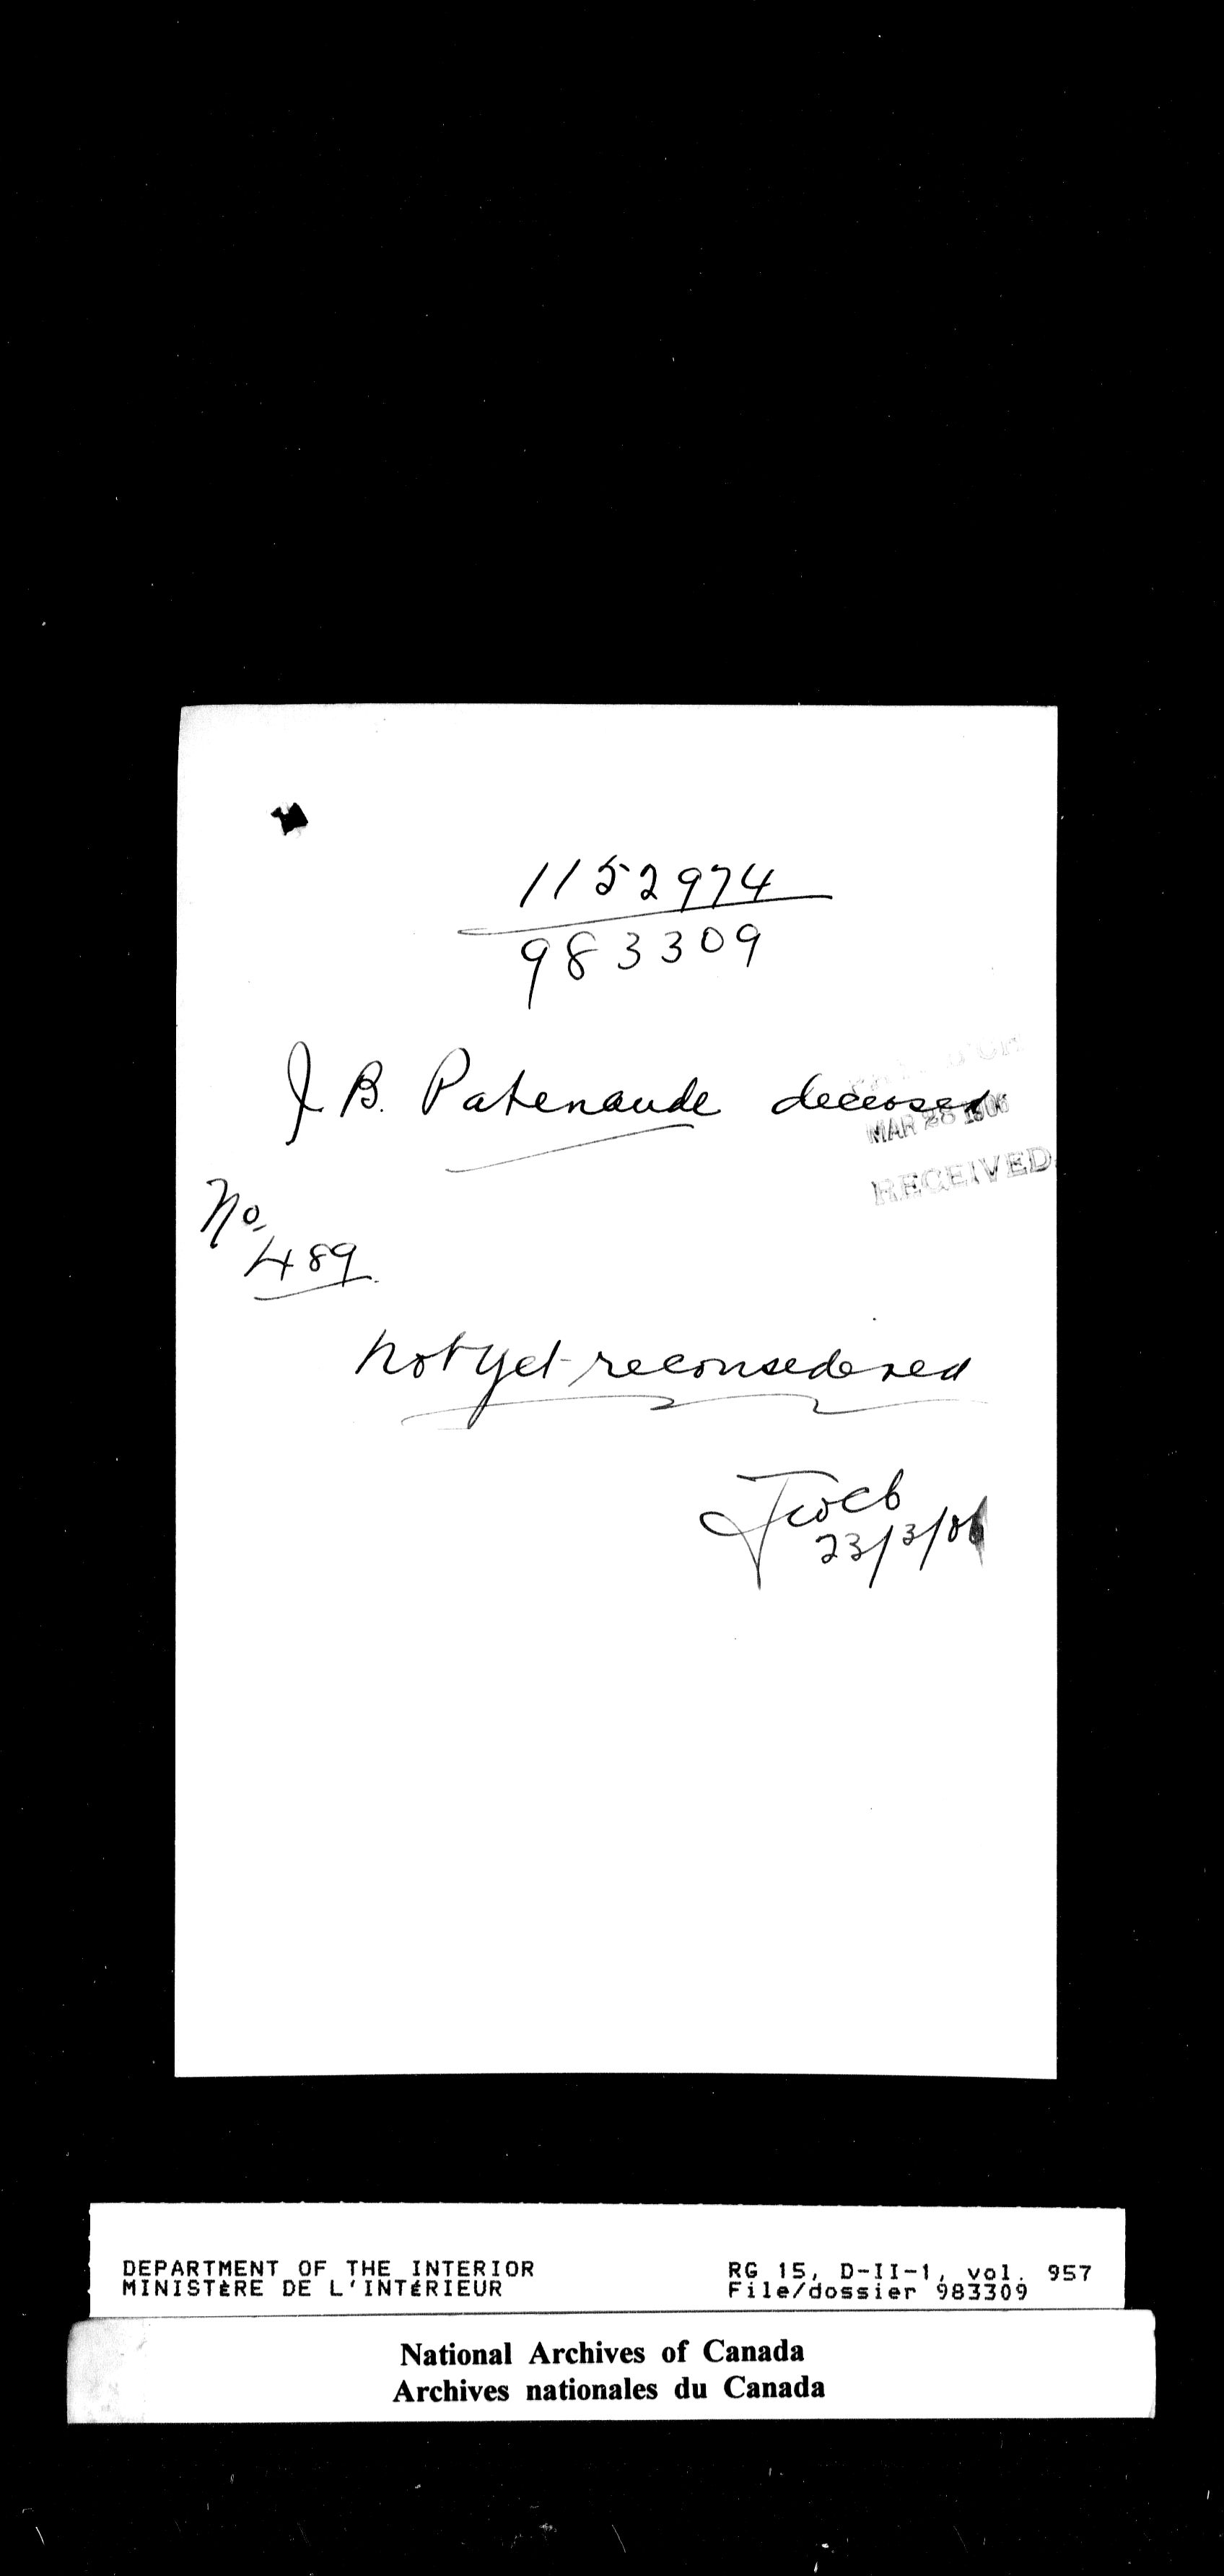 1152974
983309
J B. Patenaude deceased
MAR 28 1906
RECEIVED
No.
489.
not yet reconsedered
23/3/06
DEPARTMENT OF THE INTERIOR
MINISTÈRE DE L'INTÉRIEUR
RG 15, D-II-1, vol. 957
File/dossier 983309
National Archives of Canada
Archives nationales du Canada